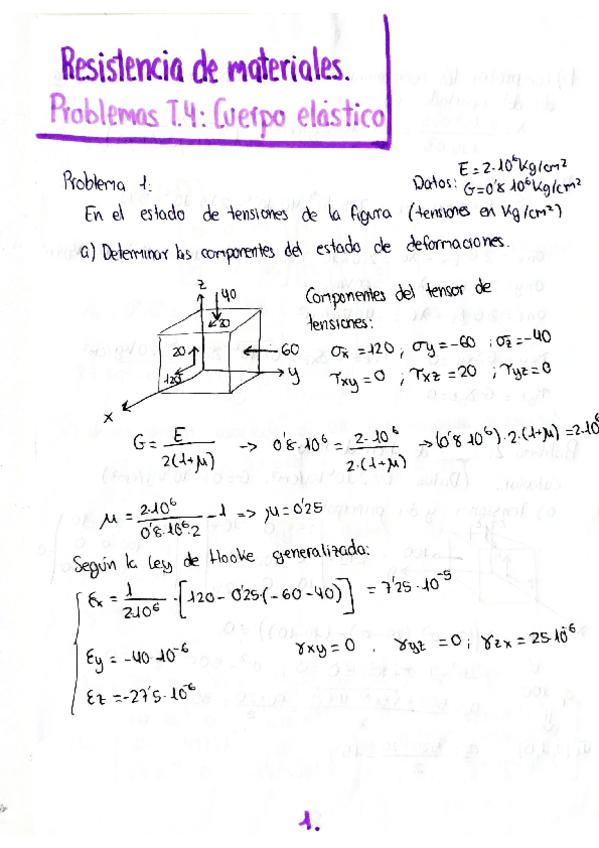 Resistencia de materiales.
Problemas T.4: Cuerpo elástico
Problema 1:
Datos: E = 2·10⁶ Kg/cm²
G = 0'8·10⁶ Kg/cm²
En el estado de tensiones de la figura (tensiones en Kg/cm²)
a) Determinar las componentes del estado de deformaciones.
z
40
20
20
60
120
y
x
Componentes del tensor de
tensiones:
σx = 120 ; σy = -60 ; σz = -40
τxy = 0 ; τxz = 20 ; τyz = 0
G = E / 2(1+μ) → 0'8·10⁶ = 2·10⁶ / 2·(1+μ) → (0'8·10⁶)·2·(1+μ) = 2·10⁶
μ = 2·10⁶ / 0'8·10⁶·2 - 1 => μ = 0'25
Según la Ley de Hooke generalizada:
εx = 1 / 2·10⁶ · [120 - 0'25·(-60-40)] = 7'25·10⁻⁵
εy = -40·10⁻⁶ γxy = 0 . γyz = 0 ; γzx = 25·10⁻⁶
εz = -27'5·10⁻⁶
1.